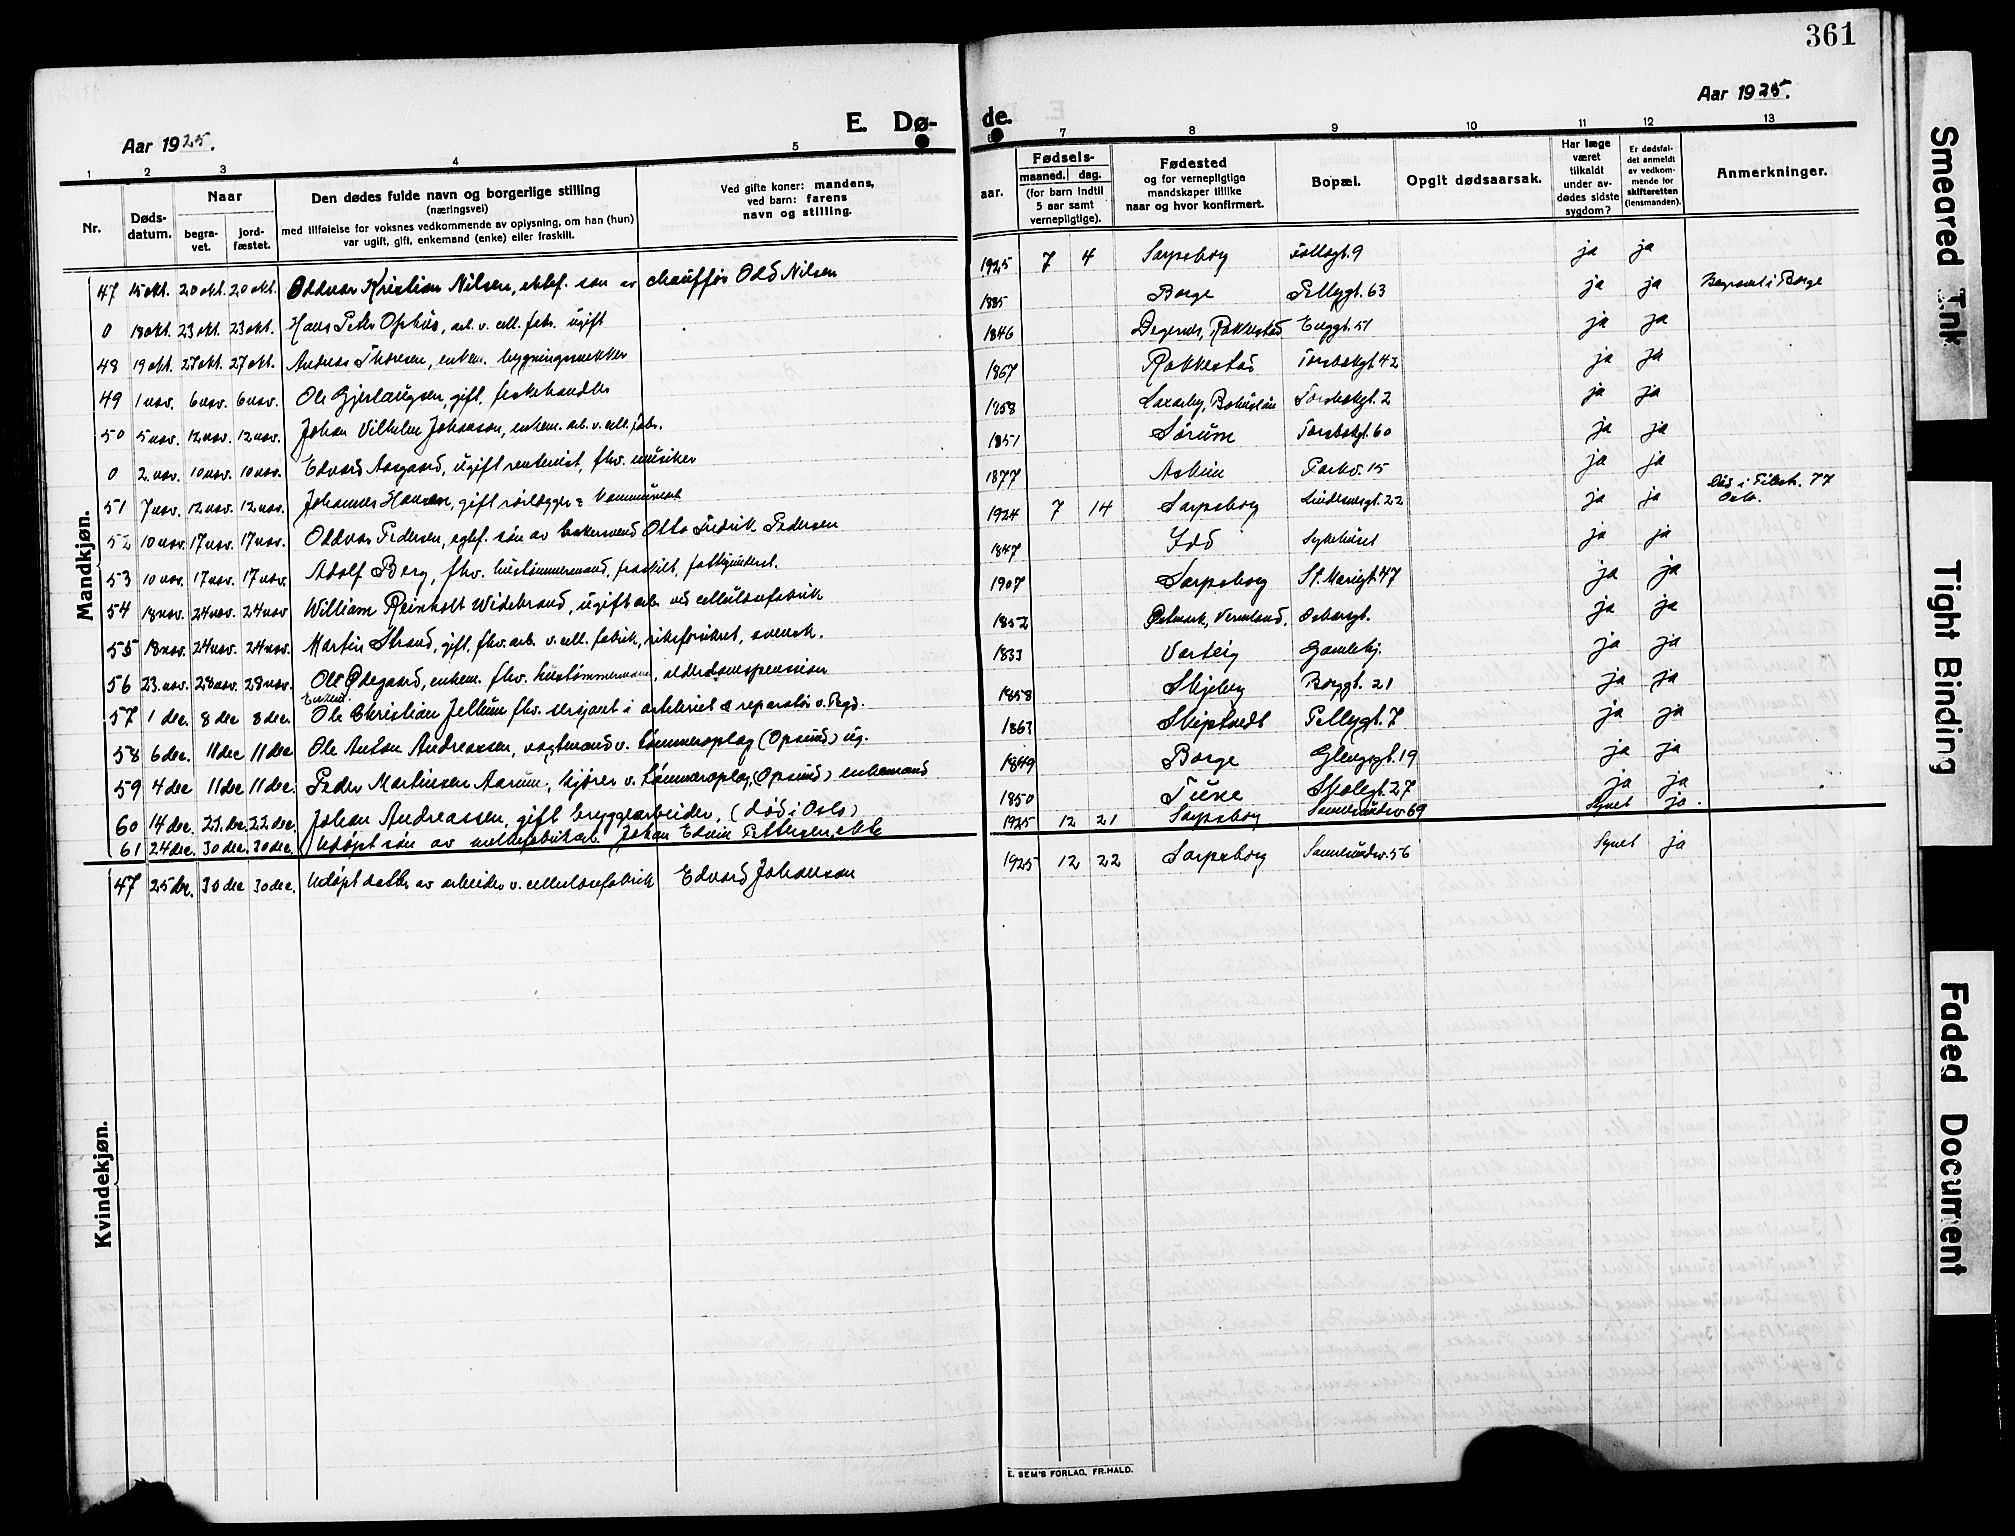 361
Aar 1925.
E. Dø-
de.
Aar 1925.
1 2 3 4 5 6 7 8 9 10 11 12 13
Nr.
Døds-
datum.
Naar
begra-
vet.
jord-
fæstet.
Den dødes fulde navn og borgerlige stilling
(næringsvei)
med tilføielse for voksnes vedkommende av oplysning, om han (hun)
var ugift, gift, enkemand (enke) eller fraskilt.
Ved gifte koner: mandens,
ved barn: farens
navn og stilling.
aar.
Fødsels-
maaned. dag.
(for barn indtil
5 aar samt
vernepligtige).
Fødested
og for vernepligtige
mandskaper tillike
naar og hvor konfirmert.
Bopæl.
Opgit dødsaarsak.
Har læge
været
tilkaldt
under av-
dødes sidste
sygdom?
Er dødsfal-
det anmeldt
av vedkom-
mende for
skifteretten
(lensmanden).
Anmerkninger.
Mandkjøn.
47 15 okt. 20 okt. 20 okt. Oddvar Kristian Nilsen, ektef. søn av chauffør Odd Nilsen 1925 7 4 Sarpsborg Tollogt. 9 ja ja
0 18 okt. 23 okt. 23 okt. Hans Peter Ophus, arb. v. cell. fabr. ugift 1885 Borge Pellygt. 63 ja ja Begravet i Borge
48 19 okt. 27 okt. 27 okt. Andreas Thoresen, enkem. bygningssnekker 1846 Degernes, Rakkestad Enggt. 51 ja ja
49 1 nov. 6 nov. 6 nov. Ole Gjerlaugsen, gift, fiskehandler 1867 Rakkestad Torsbekgt. 42 ja ja
50 5 nov. 12 nov. 12 nov. Johan Vilhelm Johanson, enkem. arb. v. cell. fabr. 1858 Laxarby, Bohuslän Torsbekgt. 2 ja ja
0 2. nov. 10 nov. 10 nov. Edvard Aasgaard, ugift rentenist, fhv. musiker 1851 Sørum Torsbekgt. 60 ja ja
51 7 nov. 12 nov. 12 nov. Johannes Hansen, gift rørlægger 1877 Askim Parkv. 15 ja ja Død i Filest. 77 Oslo.
52 10 nov. 17 nov. 17 nov. Oddvar Pedersen, egtef. søn av bakersvend Otto Fredrik Pedersen 1924 7 14 Sarpsborg Lindemansgt. 22 ja ja
53 10 nov. 17 nov. 17 nov. Adolf Berg, fhv. hustømmermand, fraskilt, fattigunderst. 1847 Idd Sykehuset ja ja
54 18 nov. 24 nov 24 nov William Reinholt Widebrand, ugift arb. ved cellulosefabrik 1907 Sarpsborg St. Mariegt. 47 ja ja
55 18 nov. 24 nov. 24 nov. Martin Strand, gift, fhv. arb. v. cell. fabrik, riksforsikret, svensk. 1852 Østmark, Vermland. Oscarsgt. ja ja
56 23. nov. 28 nov. 28 nov. Ole Ødegaard, enkem. fhv. hustømmermand, alderdomspension 1833 Varteig Gamlehj. ja ja
57 1 dec. 8 dec 8 dec. Enkem. Ole Christian Jellum fhv. sersjant i artileriet & reparatør v. Borg. 1858 Skjeberg Borggt. 21 ja ja
58 6 dec. 11 dec 11 dec Ole Anton Andreassen, vagtmand v. tømmeroplag (Opsund) ug. 1863 Skiptvedt Pellygt. 7 ja ja
59 4 dec 11 dec 11 dec. Peder Martinsen Aarum, kjører v. tømmeroplag, (Opsund) enkemand 1849 Borge Glenggt. 19 ja ja
60 14 dec. 22. dec. 22 dec. Johan Andreassen, gift bryggearbeider, (død i Oslo) 1850 Tune Skolegt. 27 ja ja
61 24 dec. 30 dec. 30 dec. Udøpt søn av cellulosefabrikarb. Johan Edvin Pettersen, ekte 1925 12 21 Sarpsborg Sannesundsv. 69 Synet ja.
Kvindekjøn.
47 25 dec. 30 dec 30 dec. Udøpt datter av arbeider v. cellulosefabrik Edvard Johansson 1925 12 22 Sarpsborg Sannesundsv. 56 Synet ja
E. SEM'S FORLAG, FR.HALD.
Smeared Ink
Tight Binding
Faded Document